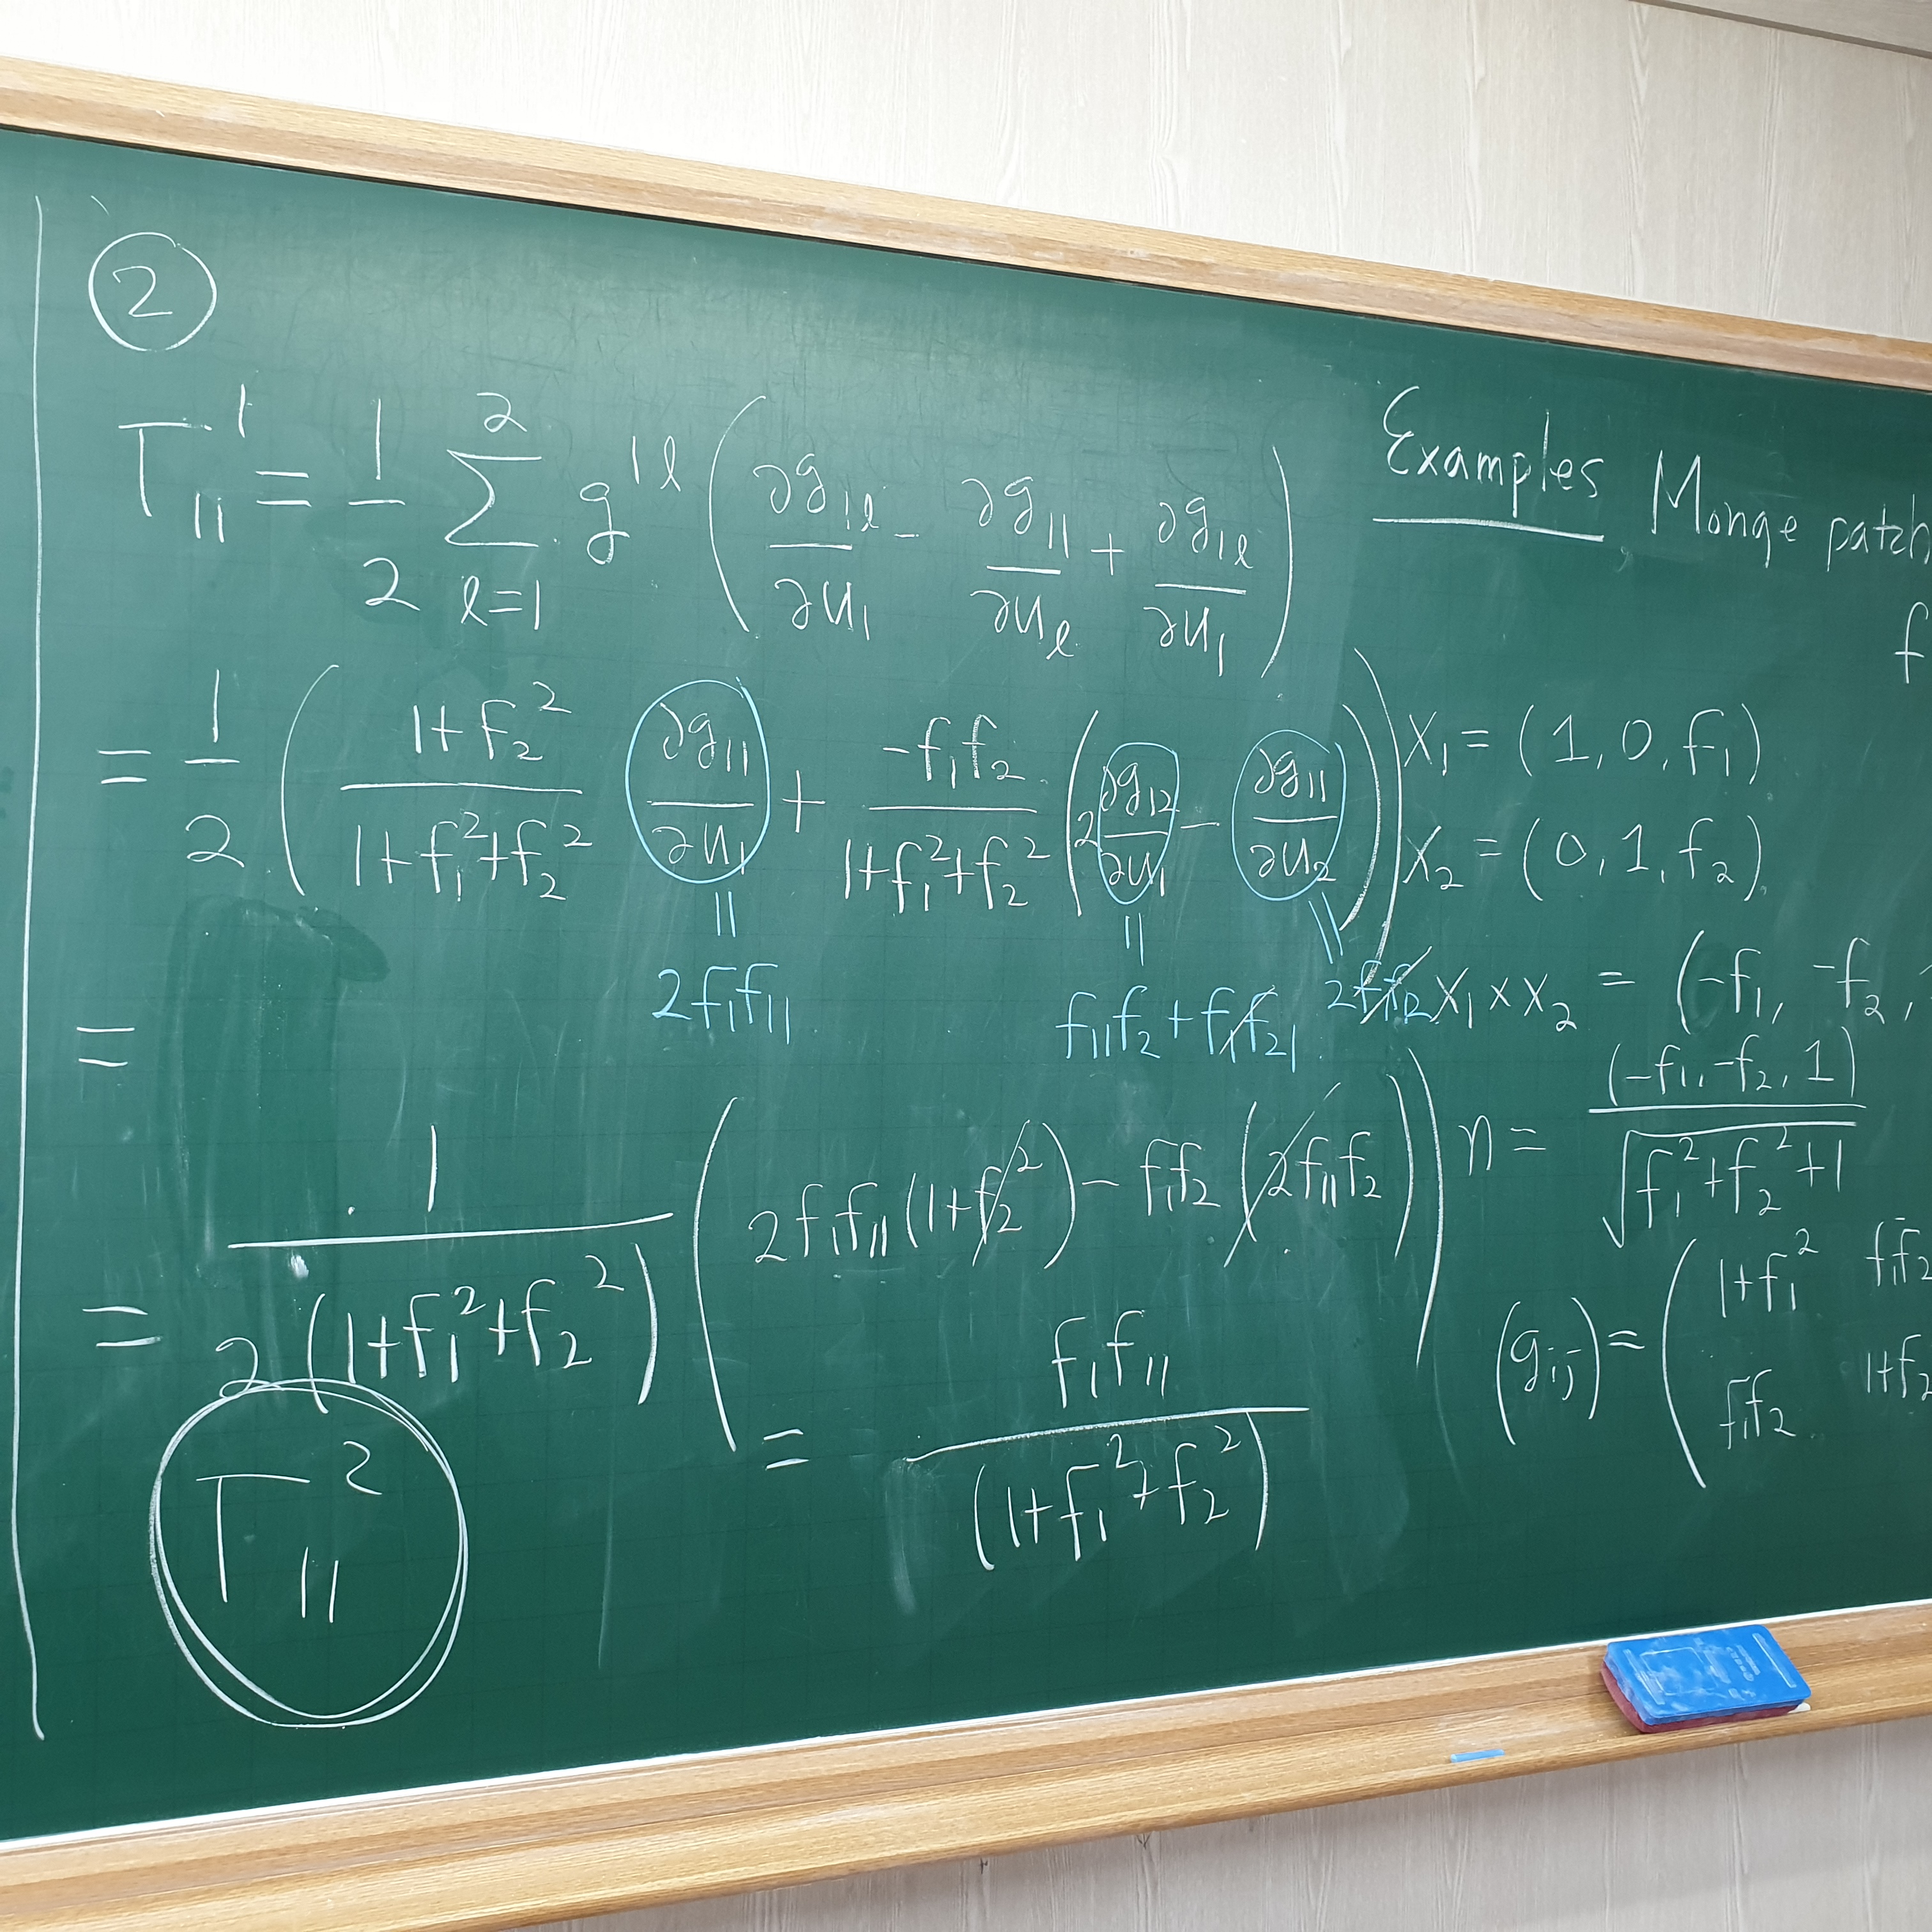 ②
Γ₁₁¹ = 1/2 Σ_{ℓ=1}^{2} g^{1ℓ} ( ∂g₁ℓ/∂u₁ - ∂g₁₁/∂u_ℓ + ∂g₁ℓ/∂u₁ )
= 1/2 ( (1+f₂²)/(1+f₁²+f₂²) ∂g₁₁/∂u₁ + (-f₁f₂)/(1+f₁²+f₂²) ( 2 ∂g₁₂/∂u₁ - ∂g₁₁/∂u₂ ) )
|| || ||
2f₁f₁₁ f₁₁f₂ + f₁f₂₁ 2f₁f₁₂
=
= 1/(2(1+f₁²+f₂²)) ( 2f₁f₁₁(1+f₂²) - f₁f₂(2f₁₁f₂) )
= f₁f₁₁/(1+f₁²+f₂²)
Γ₁₁²
Examples Monge patch
f
X₁ = (1, 0, f₁)
X₂ = (0, 1, f₂)
X₁ × X₂ = (-f₁, -f₂,
n = (-f₁, -f₂, 1)/√(f₁²+f₂²+1)
(gᵢⱼ) = ( 1+f₁² f₁f₂
f₁f₂ 1+f₂